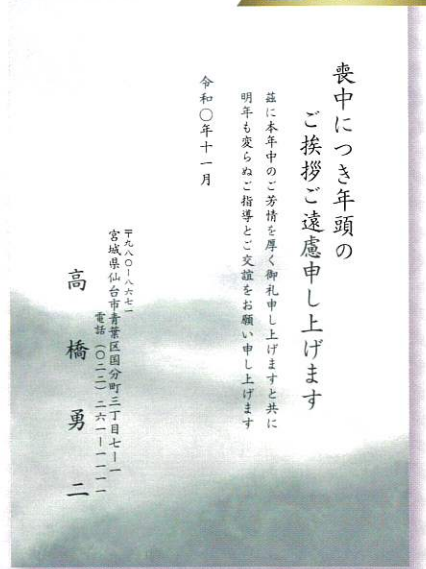 喪中につき年頭の
ご挨拶ご遠慮申し上げます
茲に本年中のご芳情を厚く御礼申し上げますと共に
明年も変らぬご指導とご交誼をお願い申し上げます
令和〇年十一月
〒九八〇ー八六七一
宮城県仙台市青葉区国分町三丁目七ー一
電話（〇二二）二六一ー一一一一
高橋勇二